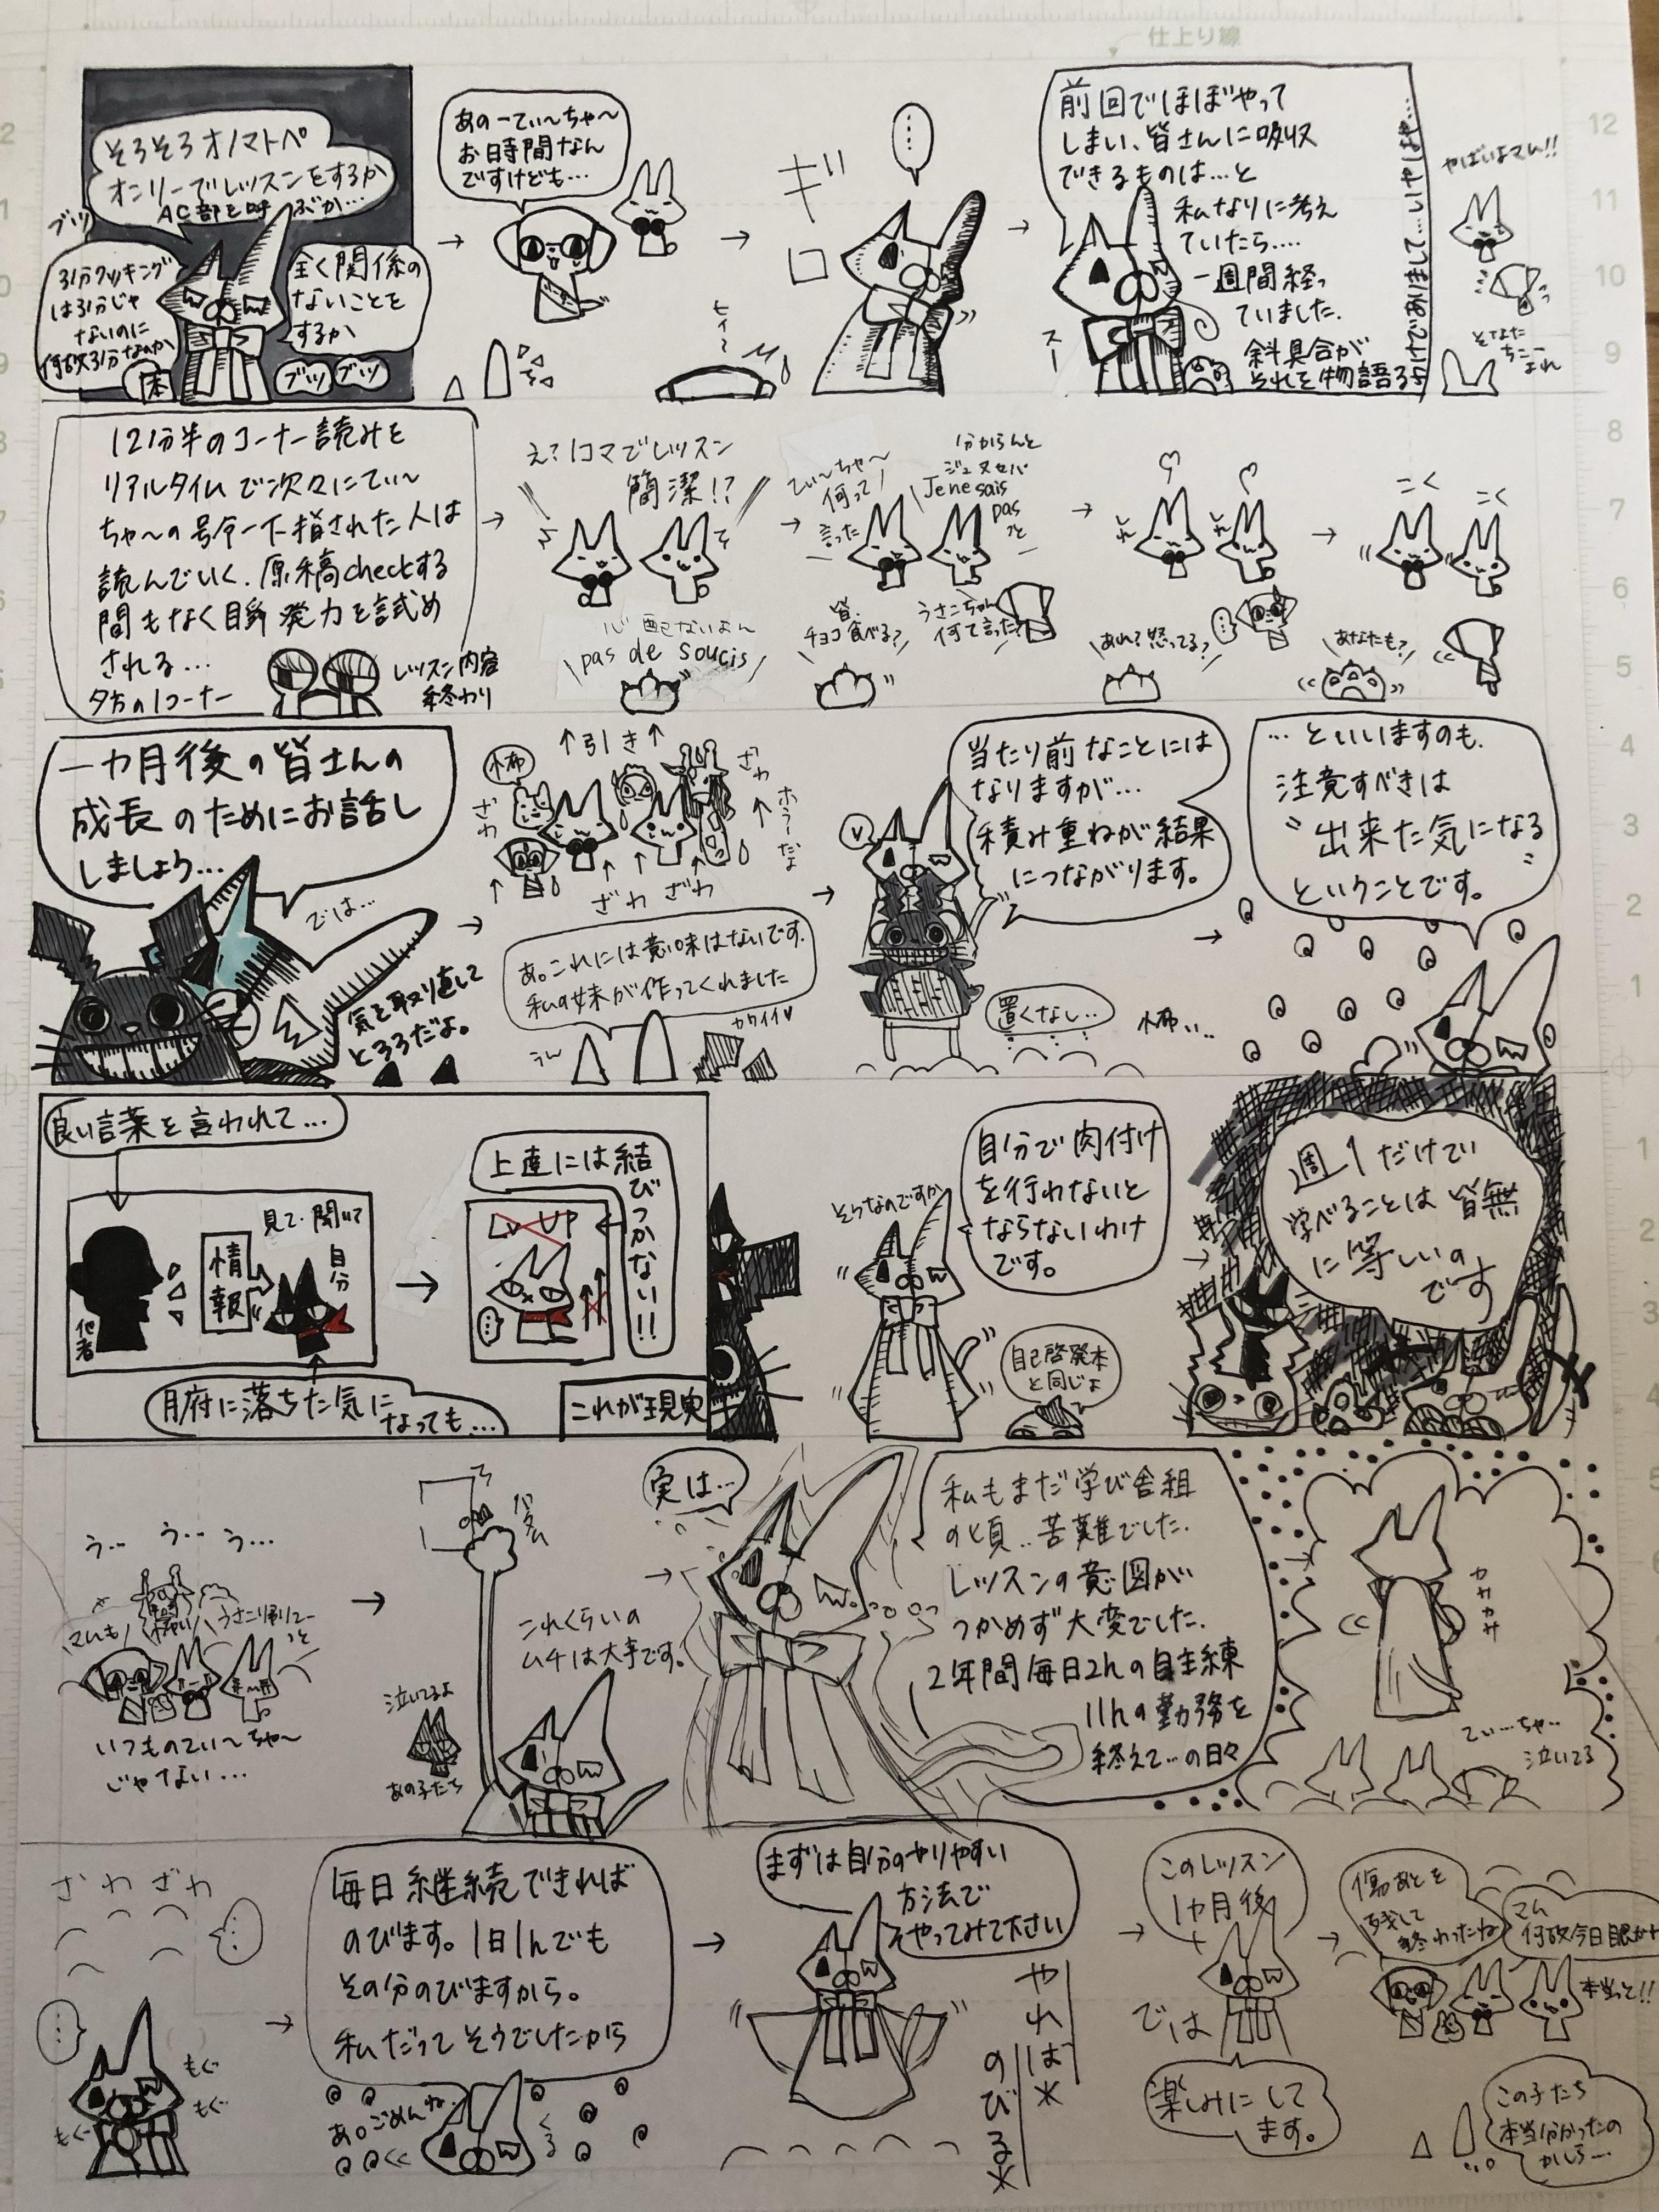 仕上り線
そろそろオノマトペ
オンリーでレッスンをするか
AC部を呼ぶか…
ブツ
3分クッキング
は3分じゃ
ないのに
何故3分なのか
全く関係の
ないことを
するか
ブツ
ブツ
あのーてぃ〜ちゃ〜
お時間なん
ですけども…
ギ
ロ
……
前回でほぼやって
しまい、皆さんに吸収
できるものは…と
私なりに考え
ていたら….
一週間経っ
ていました.
斜具合が
それを物語る
スー
やばいよマム!!
12分半のコーナー読みを
リアルタイムで次々にてぃ〜
ちゃ〜の号令一下指された人は
読んでいく.原稿checkする
間もなく瞬発力を試め
される…
夕方の1コーナー
レッスン内容
終わり
え?1コマでレッスン
簡潔!?
心配ないよん
pas de soucis
てぃ〜ちゃ〜
何って
言った
分からんと
ジュヌセパ
Je ne sais
pas
っと
皆.
チョコ食べる?
うさこちゃん
何て言った?
あれ?怒ってる?
…
こく
こく
あなたも?
一カ月後の皆さんの
成長のためにお話し
しましょう…
では…
気を取り直して
とろろだよ。
怖
↑引き↑
ざわ
ざわ
ざわ ざわ
あ。これには意味はないです.
私の妹が作ってくれました
うん
カワイイ♥
当たり前なことには
なりますが…
積み重ねが結果
につながります。
置くなし..
怖い..
…といいますのも.
注意すべきは
〝出来た気になる〟
ということです。
良い言葉を言われて…
見て・聞いて
情報
自分
他者
腑に落ちた気に
なっても…
上達には結びつかない!!
LV UP
…
これが現実
そうなのですか
自分で肉付け
を行わないと
ならないわけ
です。
自己啓発本
と同じよ
週1だけでい
学べることは皆無
に等しいの
です
う… う… う…
マムも
怖い
いつものてぃ〜ちゃ〜
じゃない…
泣いてるよ
あの子たち
これくらいの
ムチは大事です。
実は…
私もまだ学び舎組
の頃..苦難でした.
レッスンの意図が
つかめず大変でした.
2年間毎日2hの自主練
11hの勤務を
終えて…の日々
てぃ…ちゃ…
泣いてる
ざわざわ
…
…
もぐ
もぐ
もぐ
毎日継続できれば
のびます。1日1hでも
その分のびますから。
私だってそうでしたから
あ。ごめんね.
くる
まずは自分のやりやすい
方法で
やってみて下さい
やれば*
のびる*
このレッスン
1ヶ月後
では
楽しみにして
ます。
傷あとを
残して
終わったね
マム
何故今日眼が
本当っと!!
この子たち
本当分かったの
かしら…